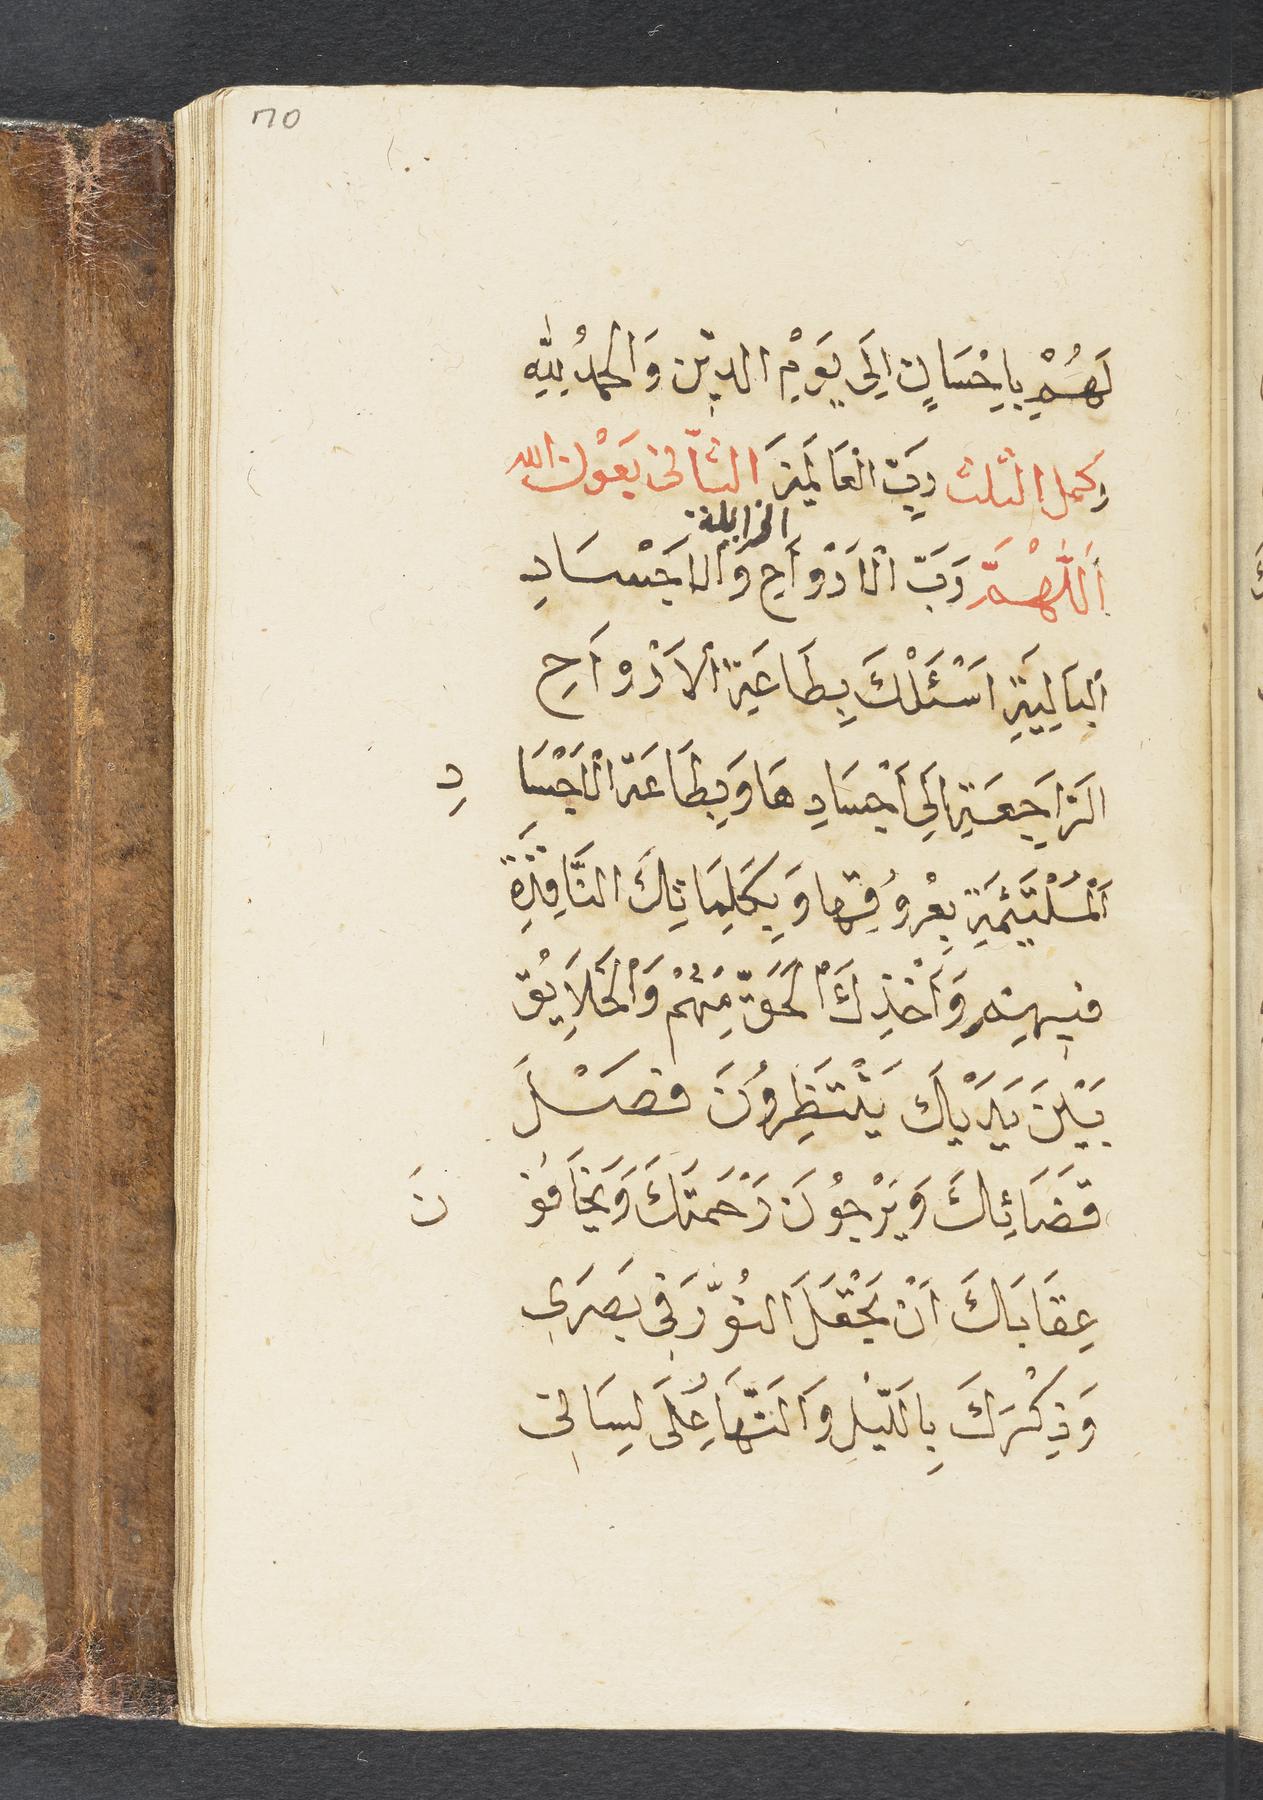 لَهُمْ بِاِحْسَانٍ اِلَى يَوْمِ الدِّيْنِ وَالْحَمْدُ لِلّٰهِ
كمل الثلث رَبِّ الْعَالَمِيْنَ الثَّانِي بِعَوْنِ الله
الزايلة
اَللّٰهُمَّ رَبَّ الْاَرْوَاحِ وَالْاَجْسَادِ
الْبَالِيَةِ اَسْئَلُكَ بِطَاعَةِ الْاَرْوَاحِ
الرَّاجِعَةِ اِلَى اَجْسَادِهَا وَبِطَاعَةِ الْاَجْسَادِ
الْمُلْتَئِمَةِ بِعُرُوقِهَا وَبِكَلِمَاتِكَ النَّافِذَةِ
فِيْهِمْ وَاَخْذِكَ الْحَقَّ مِنْهُمْ وَالْخَلَايِقُ
بَيْنَ يَدَيْكَ يَنْتَظِرُوْنَ فَصْلَ
قَضَائِكَ وَيَرْجُوْنَ رَحْمَتَكَ وَيَخَافُوْنَ
عِقَابَكَ اَنْ تَجْعَلَ النُّوْرَ فِي بَصَرِي
وَذِكْرَكَ بِاللَّيْلِ وَالنَّهَارِ عَلَى لِسَانِي